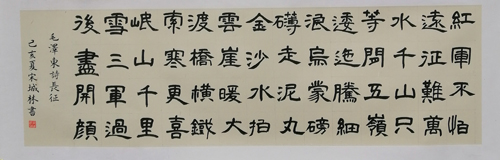 紅軍不怕
遠征難萬
水千山只
等閒五嶺
逶迤騰細
浪烏蒙磅
礴走泥丸
金沙水拍
雲崖暖大
渡橋橫鐵
索寒更喜
岷山千里
雪三軍過
後盡開顏
毛澤東詩長征
己亥夏宋城林書